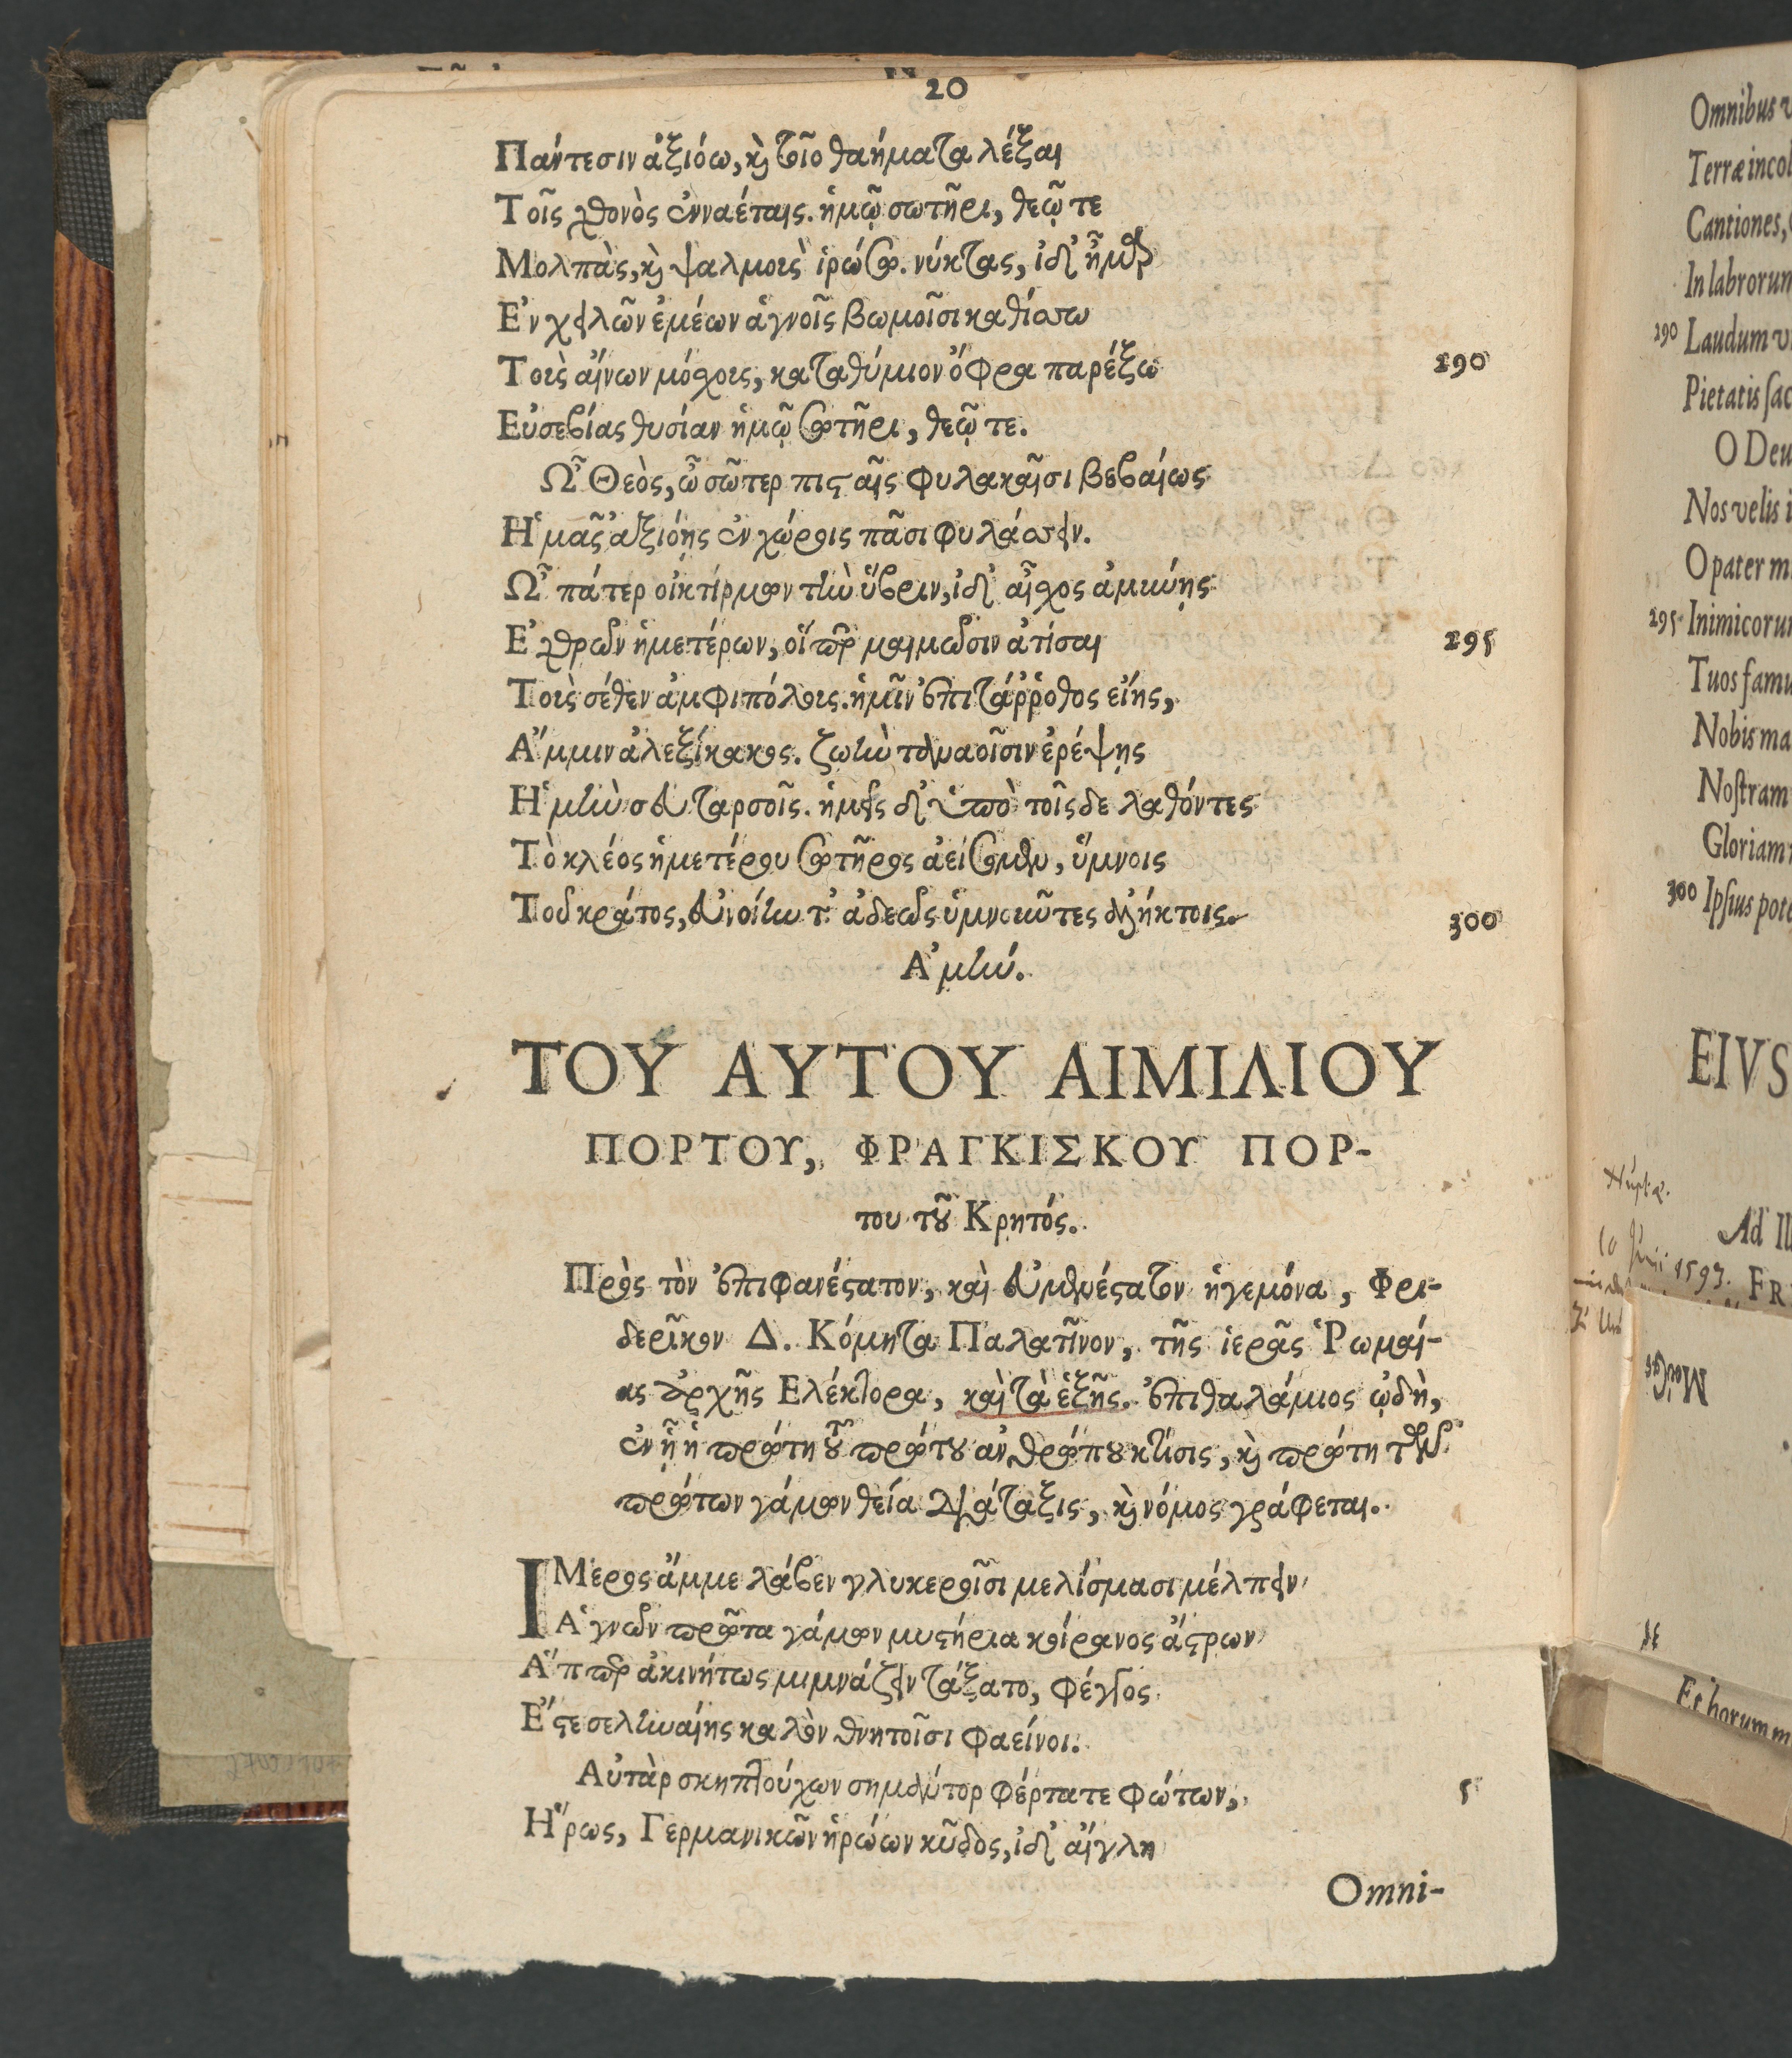 20
Πάντεσιν ἀξιόω, καὶ τοῖο θαήματα λέξαι
Τοῖς χθονὸς ἐνναέταις. ἡμῷ σωτῆρι, θεῷ τε
Μολπὰς, καὶ ψαλμοὺς ἱρώσω. νύκτας, ἰδ' ἦμαρ
Ἐν χειλῶν ἐμέων ἁγνοῖς βωμοῖσι καθίσσω
Τοὺς αἴνων μόσχους, καταθύμιον ὄφρα παρέξω 290
Εὐσεβίας θυσίαν ἡμῷ σωτῆρι, θεῷ τε.
Ὦ Θεὸς, ὦ σῶτερ πισταῖς φυλακαῖσι βεβαίως
Ἡμᾶς ἀξιόῃς ἐν χώροις πᾶσι φυλάσσειν.
Ὦ πάτερ οἰκτίρμων τὴν ὕβριν, ἰδ' αἶσχος ἀμύνῃς
Ἐχθρῶν ἡμετέρων, οἵπερ μαιμῶσιν ἀτίσαι 295
Τοὺς σέθεν ἀμφιπόλους. ἡμῖν ἐπιτάῤῥοθος εἴης,
Ἄμμιν ἀλεξίκακος. ζωὴν τεναοῖσιν ἐρέψῃς
Ἡμὴν σεῦ ταρσοῖς. ἡμεῖς δ' ὑπὸ τοῖσδε λαθόντες
Τὸ κλέος ἡμετέρου σωτῆρος ἀείσομεν, ὕμνοις
Τοῦ κράτος, εὐνοίην τ' ἀδεῶς ὑμνοῦντες ἀλήκτοις. 300
Ἀμήν.
ΤΟΥ ΑΥΤΟΥ ΑΙΜΙΛΙΟΥ
ΠΟΡΤΟΥ, ΦΡΑΓΚΙΣΚΟΥ ΠΟΡ-
του τοῦ Κρητός.
Πρὸς τὸν ἐπιφανέστατον, καὶ εὐμενέστατον ἡγεμόνα, Φρι-
δερῖκον Δ. Κόμητα Παλατῖνον, τῆς ἱερᾶς Ῥωμαί-
ας ἀρχῆς Ελέκτορα, καὶ τὰ ἑξῆς. ἐπιθαλάμιος ᾠδὴ,
ἐν ᾗ ἡ πρώτη τοῦ πρώτου ἀνθρώπου κτίσις, καὶ πρώτη τῶν
πρώτων γάμων θεία διάταξις, καὶ νόμος γράφεται.
ΙΜερος ἄμμε λάβεν γλυκεροῖσι μελίσμασι μέλπειν
Ἁγνῶν πρῶτα γάμων μυστήρια κοίρανος ἄστρων
Ἅπερ ἀκινήτως μιμνάζειν τάξατο, φέγγος
Ἔστε σεληναίης καλὸν θνητοῖσι φαείνοι.
Αὐτὰρ σκηπτούχων σημάντορ φέρτατε φώτων, 5
Ἥρως, Γερμανικῶν ἡρώων κῦδος, ἰδ' αἴγλη
Omni-
Omnibus
Terræ incol
Cantiones,
In labrorum
290 Laudum
Pietatis sac
O Deu
Nos velis i
O pater m
295 Inimicorum
Tuos famu
Nobis ma
Nostram
Gloriam
300 Ipsius pote
EIVS
Ad Il
1593.
FR
Et horum m